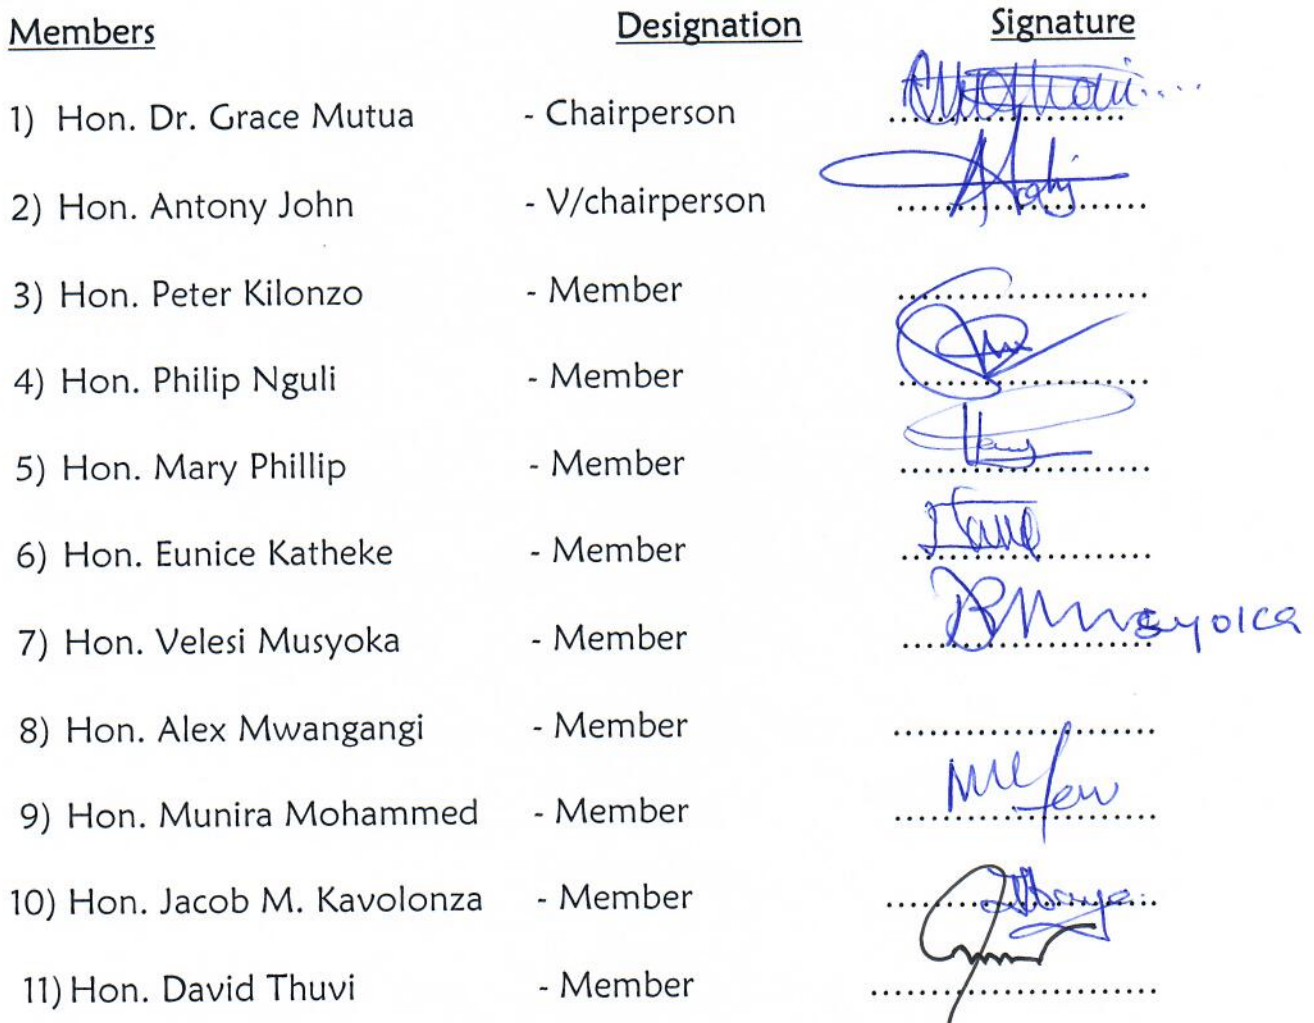 Members Designation Signature
1) Hon. Dr. Grace Mutua - Chairperson ....................
2) Hon. Antony John - V/chairperson ....................
3) Hon. Peter Kilonzo - Member ....................
4) Hon. Philip Nguli - Member ....................
5) Hon. Mary Phillip - Member ....................
6) Hon. Eunice Katheke - Member ....................
7) Hon. Velesi Musyoka - Member ....................
8) Hon. Alex Mwangangi - Member ....................
9) Hon. Munira Mohammed - Member ....................
10) Hon. Jacob M. Kavolonza - Member ....................
11) Hon. David Thuvi - Member ....................